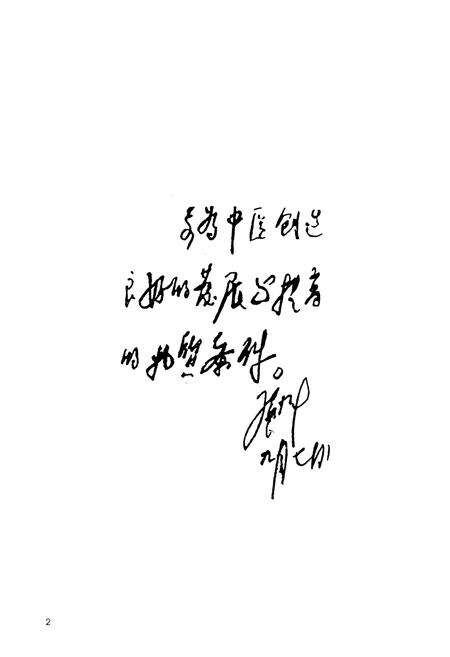 要为中医创造
良好的发展与提高
的物质条件。
九月七日
2